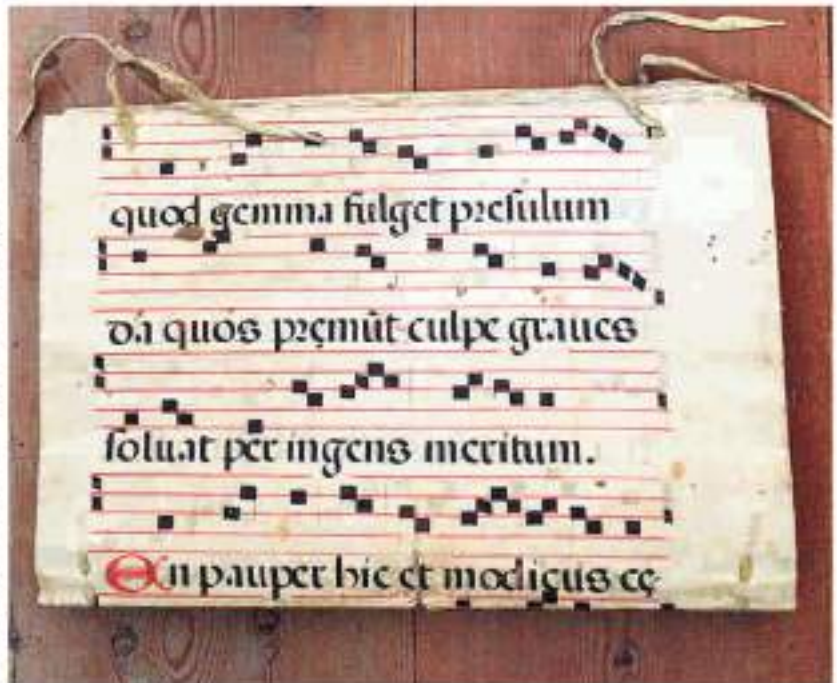 quod gemma fulget presulum
dá quos pręmūt culpe graues
soluat per ingens meritum.
En pauper hic et modicus cę